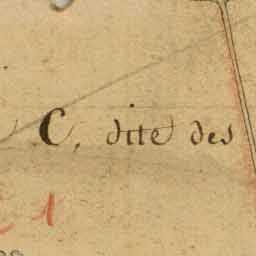 C, dite des
1